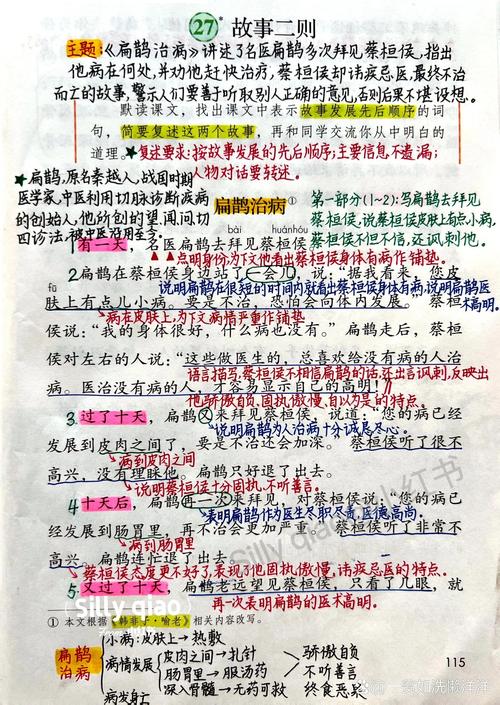 27* 故事二则
主题:《扁鹊治病》讲述了名医扁鹊多次拜见蔡桓侯,指出
他病在何处,并劝他赶快治疗,蔡桓侯却讳疾忌医,最终不治
而亡的故事,警示人们要善于听取别人正确的意见,否则后果不堪设想。
默读课文,找出课文中表示故事发展先后顺序的词
句,简要复述这两个故事,再和同学交流你从中明白的
道理。★复述要求:按故事发展的先后顺序;主要信息不遗漏;
人物对话要转述。
★扁鹊,原名秦越人,战国时期
医学家,中医利用切脉诊断疾病
的创始人,他所创的望、闻、问、切
四诊法,被中医沿用至今。
扁鹊治病①
第一部分(1-2):写扁鹊去拜见
蔡桓侯,说蔡桓侯皮肤上有点小病,
蔡桓侯不但不信,还讽刺他。
bài huánhóu
1有一天,名医扁鹊去拜见蔡桓侯
点明身份,为下文他看出蔡桓侯身体有病作铺垫
2扁鹊在蔡桓侯身边站了一会儿,说:“据我看来,您皮
fū
说明扁鹊在很短的时间内就看出蔡桓侯身体有病,说明扁鹊医
术高明。
肤上有点儿小病。要是不治,恐怕会向体内发展。”蔡桓
病在皮肤上,为下文病情严重作铺垫
侯说:“我的身体很好,什么病也没有。”扁鹊走后,蔡桓
侯对左右的人说:“这些做医生的,总喜欢给没有病的人治
语言描写,蔡桓侯不相信扁鹊的话,还出言讽刺,反映出
病。医治没有病的人,才容易显示自己的高明!”
他骄傲自负,固执傲慢,自以为是的特点。
3.过了十天,扁鹊又来拜见蔡桓侯,说道:“您的病已经
说明扁鹊为人治病十分诚恳尽心。
发展到皮肉之间了,要是不治还会加深。”蔡桓侯听了很不
病到皮肉之间
高兴,没有理睬他。扁鹊只好退了出去。
说明蔡桓侯十分固执,不听善言。
4十天后,扁鹊再一次来拜见,对蔡桓侯说:“您的病已
表明扁鹊作为医生尽职尽责,医德高尚。
经发展到肠胃里,再不治会更加严重。”蔡桓侯听了非常不
病到肠胃里
高兴。扁鹊连忙退了出去。
蔡桓侯态度更不好了,表现了他固执傲慢,讳疾忌医的特点。
5又过了十天,扁鹊老远望见蔡桓侯,只看了几眼,就
再一次表明扁鹊的医术高明。
① 本文根据《韩非子·喻老》相关内容改写。
扁鹊
治病
小病:皮肤上→热敷
病情发展
皮肉之间→扎针
肠胃里→服汤药
病发身亡
深入骨髓→无药可救
骄傲自负
不听善言
终食恶果
115
Silly qiao
Silly qiao
小红书